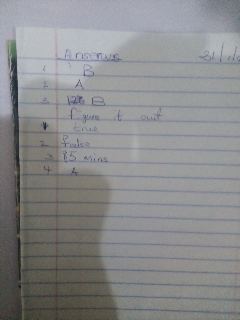 Answers 31/10
1 B
2 A
3 B
figure it out
1 true
2 false
3 85 mins
4 A